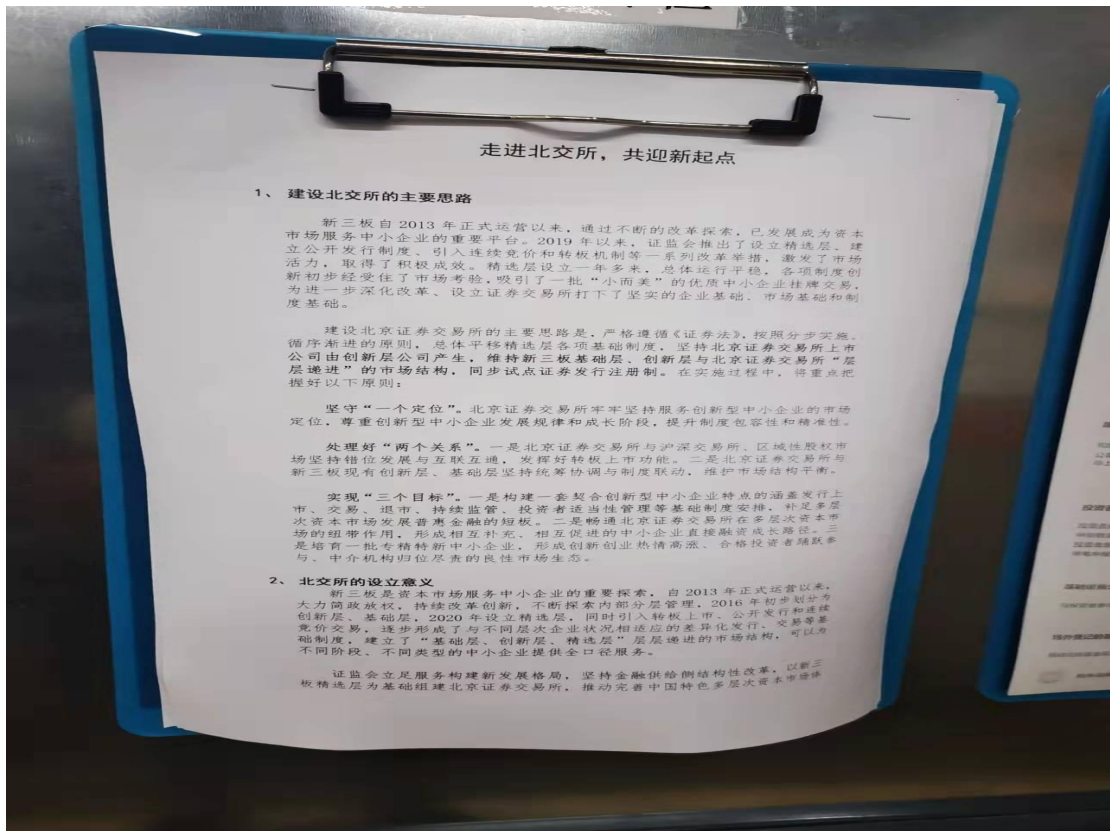 走进北交所，共迎新起点
1、 建设北交所的主要思路
新三板自 2013 年正式运营以来，通过不断的改革探索，已发展成为资本
市场服务中小企业的重要平台。2019 年以来，证监会推出了设立精选层、建
立公开发行制度、引入连续竞价和转板机制等一系列改革举措，激发了市场
活力，取得了积极成效。精选层设立一年多来，总体运行平稳，各项制度创
新初步经受住了市场考验，吸引了一批“小而美”的优质中小企业挂牌交易，
为进一步深化改革、设立证券交易所打下了坚实的企业基础、市场基础和制
度基础。
建设北京证券交易所的主要思路是，严格遵循《证券法》，按照分步实施、
循序渐进的原则，总体平移精选层各项基础制度，坚持北京证券交易所上市
公司由创新层公司产生，维持新三板基础层、创新层与北京证券交易所“层
层递进”的市场结构，同步试点证券发行注册制。在实施过程中，将重点把
握好以下原则：
坚守“一个定位”。北京证券交易所牢牢坚持服务创新型中小企业的市场
定位，尊重创新型中小企业发展规律和成长阶段，提升制度包容性和精准性。
处理好“两个关系”。一是北京证券交易所与沪深交易所、区域性股权市
场坚持错位发展与互联互通，发挥好转板上市功能。二是北京证券交易所与
新三板现有创新层、基础层坚持统筹协调与制度联动，维护市场结构平衡。
实现“三个目标”。一是构建一套契合创新型中小企业特点的涵盖发行上
市、交易、退市、持续监管、投资者适当性管理等基础制度安排，补足多层
次资本市场发展普惠金融的短板。二是畅通北京证券交易所在多层次资本市
场的纽带作用，形成相互补充、相互促进的中小企业直接融资成长路径。三
是培育一批专精特新中小企业，形成创新创业热情高涨、合格投资者踊跃参
与、中介机构归位尽责的良性市场生态。
2、 北交所的设立意义
新三板是资本市场服务中小企业的重要探索，自 2013 年正式运营以来，
大力简政放权，持续改革创新，不断探索内部分层管理，2016 年初步划分为
创新层、基础层，2020 年设立精选层，同时引入转板上市、公开发行和连续
竞价交易，逐步形成了与不同层次企业状况相适应的差异化发行、交易等基
础制度，建立了“基础层、创新层、精选层”层层递进的市场结构，可以为
不同阶段、不同类型的中小企业提供全口径服务。
证监会立足服务构建新发展格局，坚持金融供给侧结构性改革，以新三
板精选层为基础组建北京证券交易所，推动完善中国特色多层次资本市场体